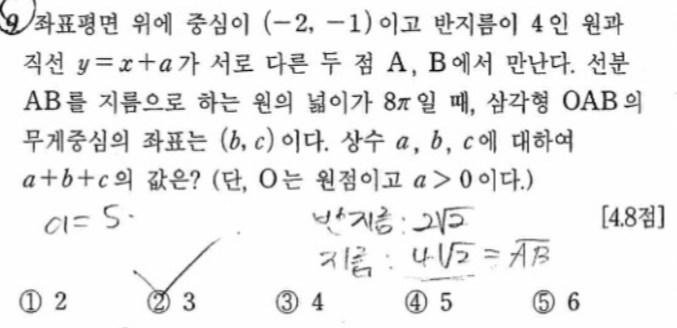 9 좌표평면 위에 중심이 (-2, -1)이고 반지름이 4인 원과
직선 y=x+a가 서로 다른 두 점 A, B에서 만난다. 선분
AB를 지름으로 하는 원의 넓이가 8π일 때, 삼각형 OAB의
무게중심의 좌표는 (b, c)이다. 상수 a, b, c에 대하여
a+b+c의 값은? (단, O는 원점이고 a>0이다.)
[4.8점]
a=5.
반지름: 2√2
지름: 4√2 = AB
① 2 ② 3 ③ 4 ④ 5 ⑤ 6